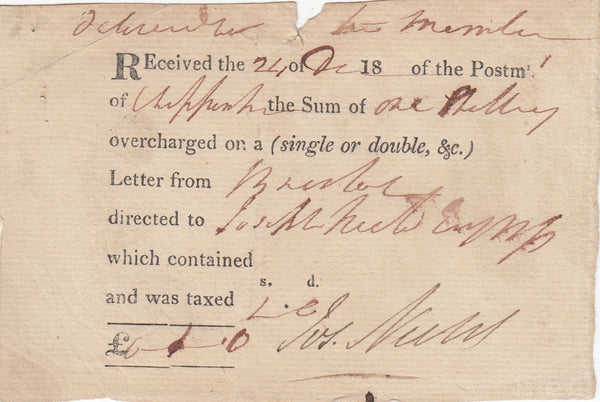 REceived the 24 of De 18 of the Postmr
of Chippenham the Sum of one Shilling
overcharged on a (single or double, &c.)
Letter from Bristol
directed to Joseph Neeld Esq MP
which contained
s. d.
and was taxed
£ 0 1 0 Jos. Neeld